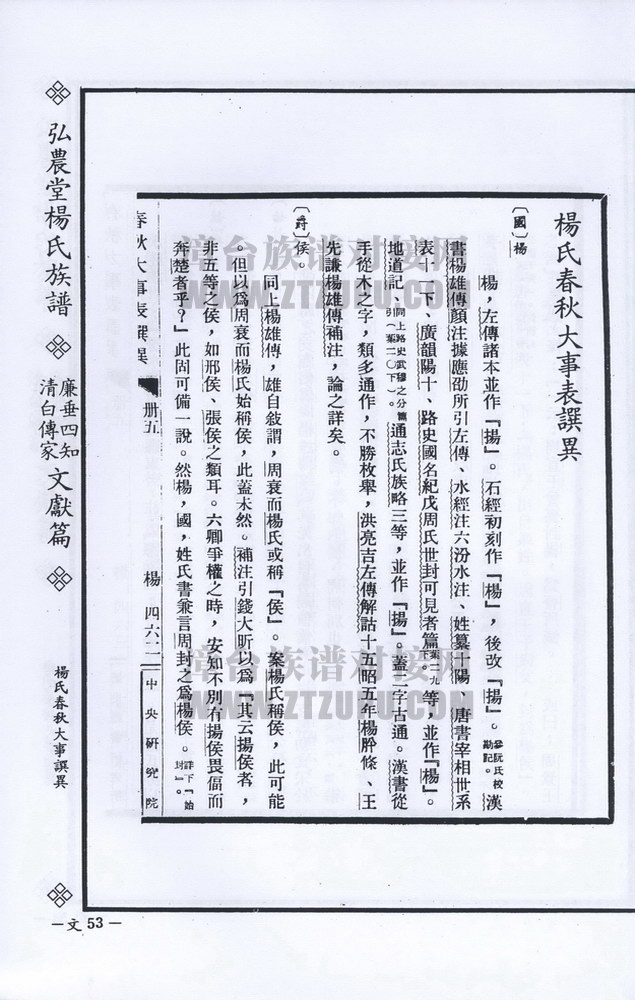 楊氏春秋大事表譔異
〔國〕楊
楊，左傳諸本並作『揚』。石經初刻作『楊』，後改『揚』。參阮氏校勘記。漢
書楊雄傳顏注據應劭所引左傳、水經注六汾水注、姓纂十陽、唐書宰相世系
表十一下、廣韻陽十、路史國名紀戊周氏世封可見者篇葉二九下。等，並作『楊』。
地道記、同上路史武穆之分篇引（葉二〇下）。通志氏族略三等，並作『揚』。蓋二字古通。漢書從
手從木之字，類多通作，不勝枚舉，洪亮吉左傳解詁十五昭五年楊肸條、王
先謙楊雄傳補注，論之詳矣。
〔爵〕侯。
同上楊雄傳，雄自敍謂，周衰而楊氏或稱『侯』。案楊氏稱侯，此可能
。但以爲周衰而楊氏始稱侯，此蓋未然。補注引錢大昕以爲『其云揚侯者，
非五等之侯，如邢侯、張侯之類耳。六卿爭權之時，安知不別有揚侯畏偪而
奔楚者乎？』此固可備一說。然楊，國，姓氏書兼言周封之爲楊侯。詳下『始封』。
春秋大事表譔異 卌五 楊 四六二 中央研究院
弘農堂楊氏族譜 廉垂四知 清白傳家 文獻篇 楊氏春秋大事譔異
文 53
璋台族谱对接网
WWW.ZTZUPU.COM
璋台族谱对接网
WWW.ZTZUPU.COM